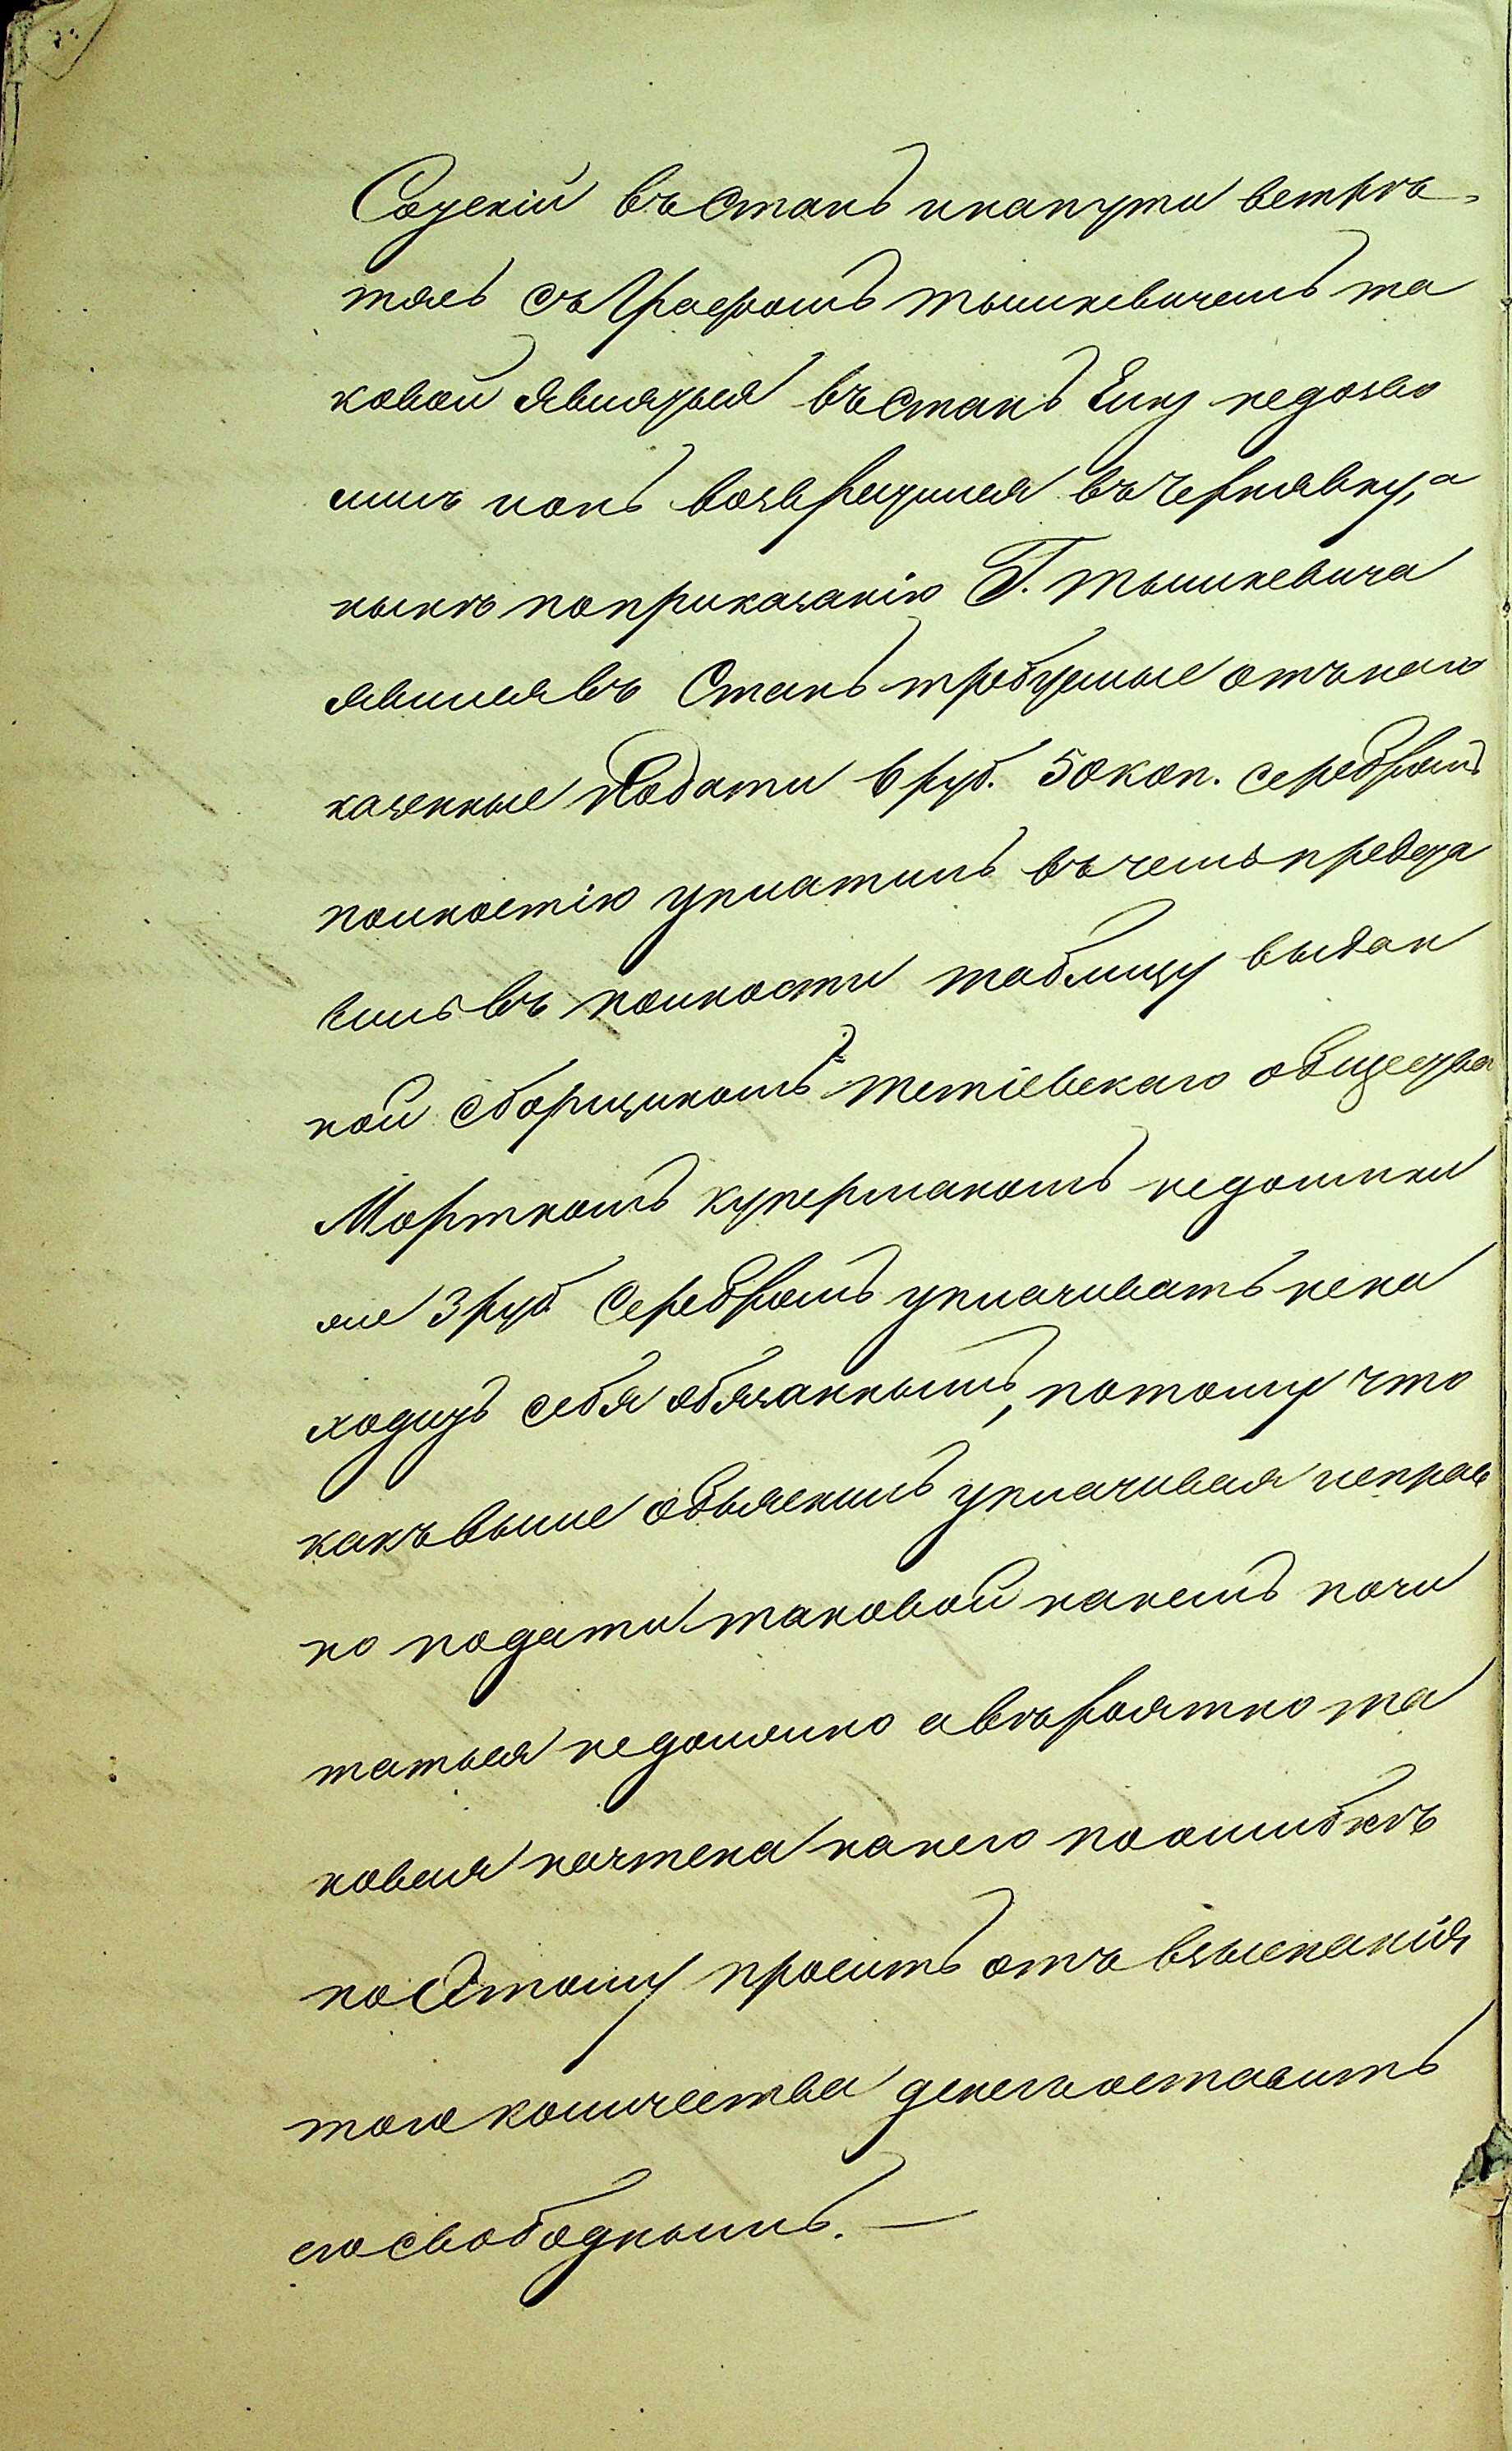 Соцкій въ Станъ и на пути встрѣ-
тясь съ Графомъ тышкевичемъ та
ковой явиться въ Станъ Ему недозво
лилъ и онъ возвратился въ Чернявку, а
нынѣ по приказанію Г. тышкевича
явился въ Станъ требуемые отъ него
казенные Подати 6 руб. 50 коп. серебромъ
полностію уплатилъ въ чемъ предъя
вилъ въ полности таблицу выдан
ной сборщикомъ тетіевскаго общества
Морткомъ купермономъ недоимки
же 3 руб Серебромъ уплачивать нена
ходитъ себя обязаннымъ, потому что
какъ выше объяснилъ уплачивая исправ
но подати таковой нанемъ почи
таться недолжно а вѣроятно та
ковая начтена нанего по ошибкѣ
по Этому проситъ отъ взысканія
того количества денегъ оставить
его свободнымъ. —